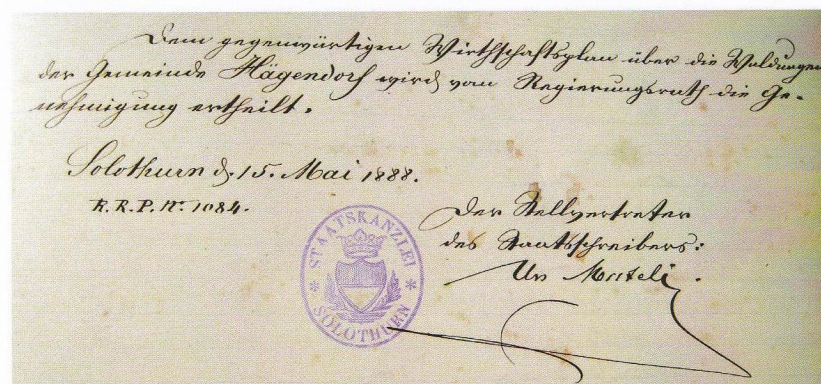 Dem gegenwärtigen Wirthschaftsplan über die Waldungen
der Gemeinde Hägendorf wird vom Regierungsrath die Ge-
nehmigung ertheilt.
Solothurn d. 15. Mai 1888.
R.R.P. No. 1084.
Der Stellvertreter
des Staatsschreibers:
Urs
STAATSKANZLEI
* SOLOTHURN *